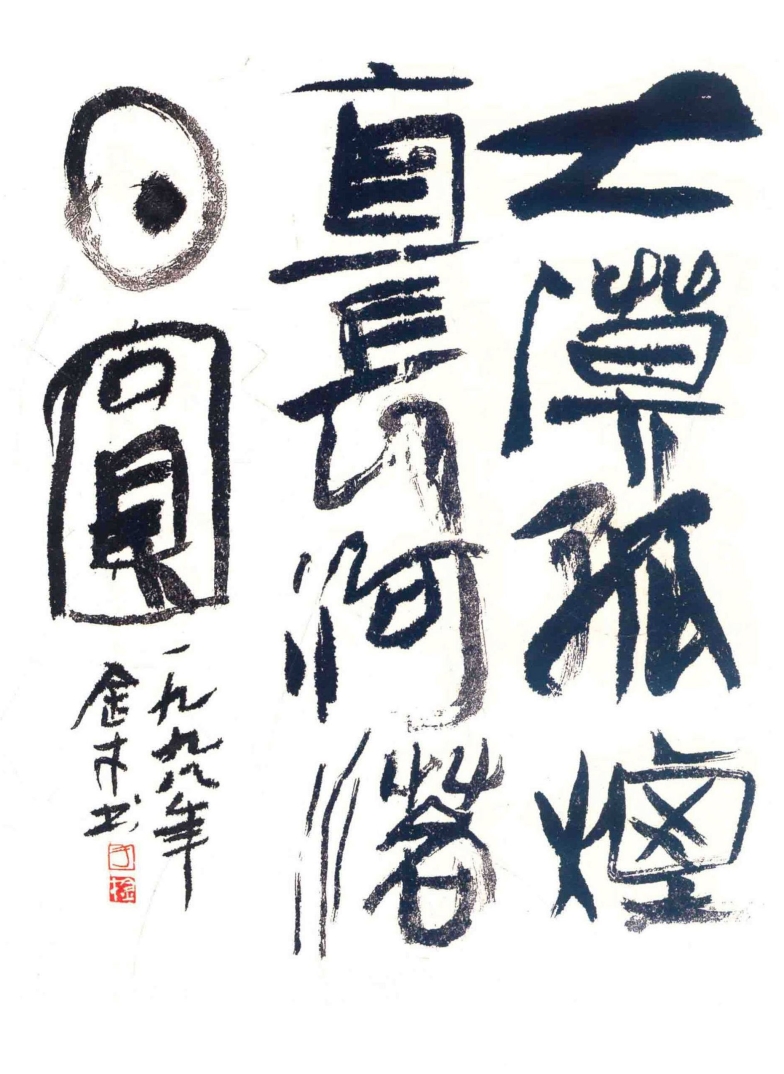 大漠孤煙
直長河落
日圓
一九九八年
金木书